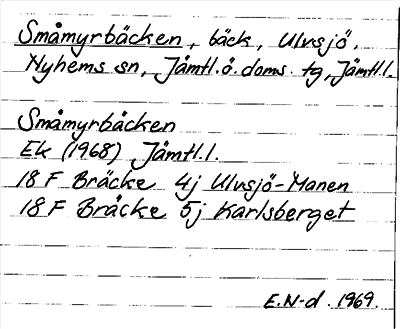 Småmyrbäcken, bäck, Ulvsjö,
Nyhems sn, Jämtl.ö. doms. tg, Jämtl.l.
Småmyrbäcken
Ek (1968) Jämtl.l.
18 F Bräcke 4j Ulvsjö-Manen
18 F Bräcke 5j Karlsberget
E.N-d. 1969.